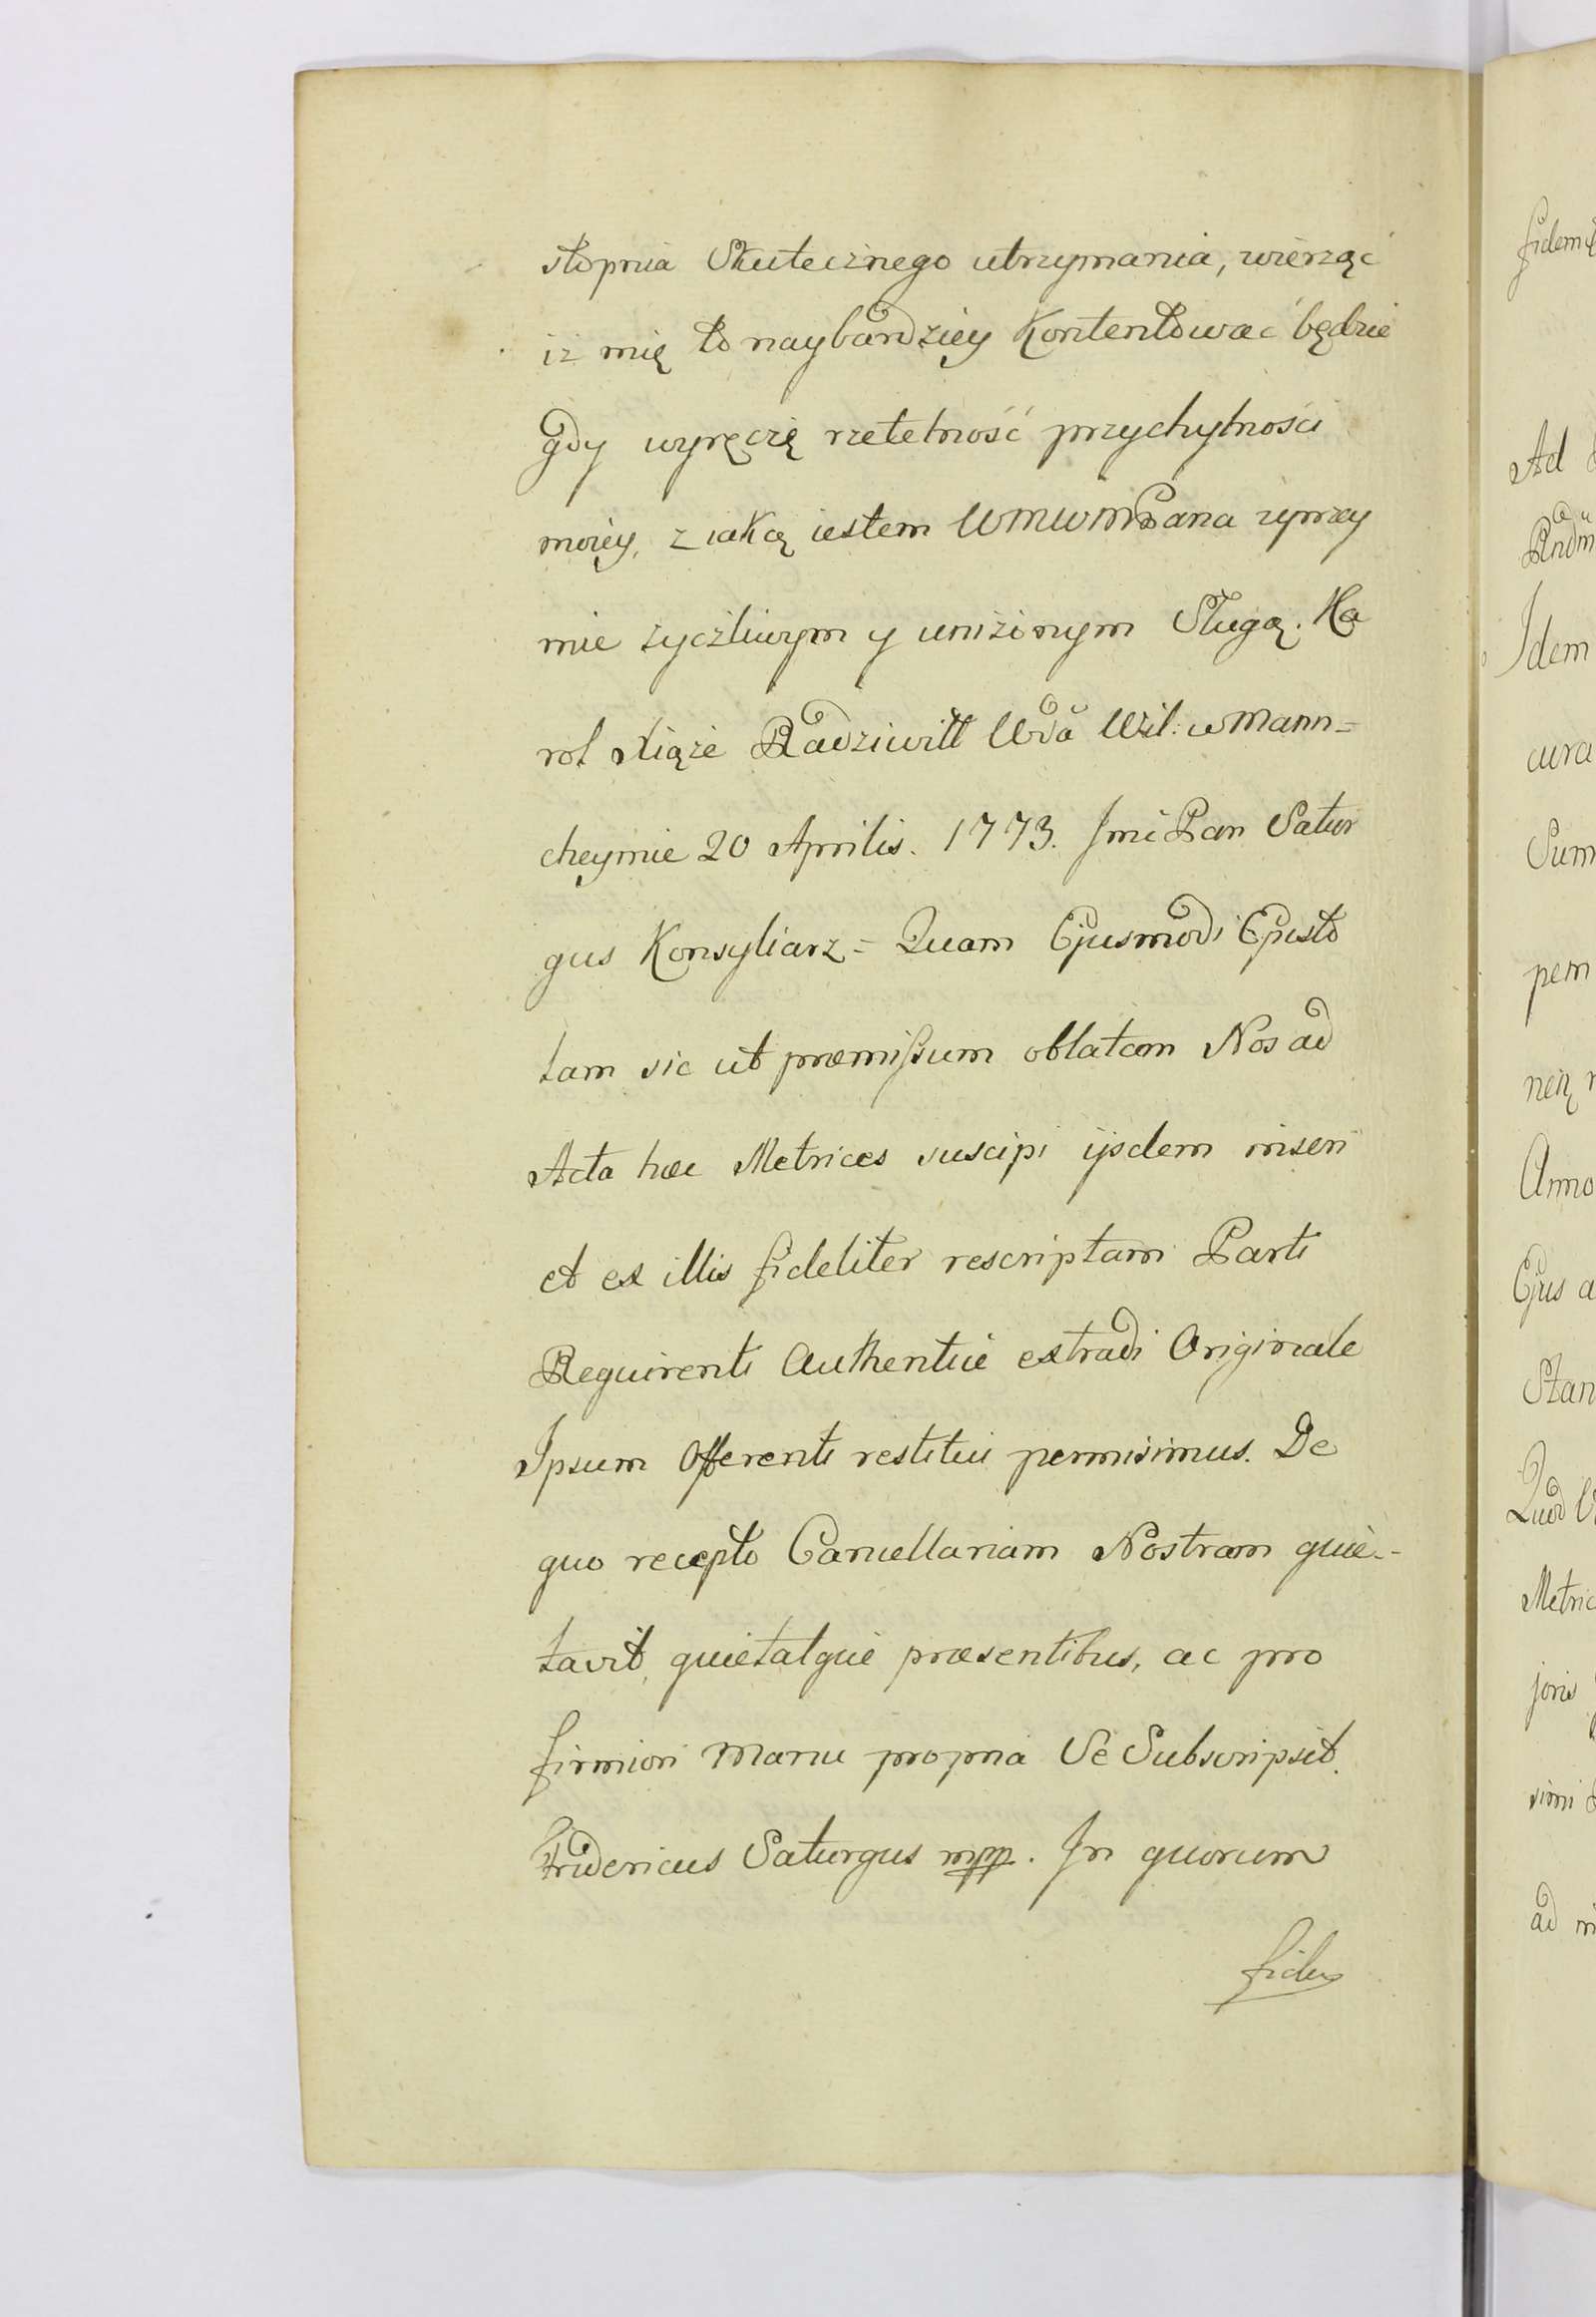 stopnia Skutecznego utrzymania, wierząc
iż mię to naybardziey Kontentować będzie
gdy wyręczę rzetelność przychylności
moiey, z iaką iestem WMWMPana uprzey
mie życzliwym y uniżonym Sługą. Ka
rol Xiąże Radziwiłł Wda Wil: w Mann=
cheymie 20 Aprilis. 1773. Jmć Pan Satur
gus Konsyliarz = Quam Ejusmodi Episto
lam sic ut præmissum oblatam Nos ad
Acta hæc Metrices suscipi ijsdem inseri
et ex illis fideliter rescriptam Parti
Requirenti Authentice extradi Originale
Ipsum Offerenti restitui permisimus. De
quo recepto Cancellariam Nostram quie=
tavit, quietatque præsentibus, ac pro
firmiori Manu propria Se Subscripsit.
Fridericus Saturgus mpp. In quorum
fidem
fidem
Ad
Idem
cura
Sum
pem
Anno
Ejus a
Stan
Quod
Metric
joris
simi
ad